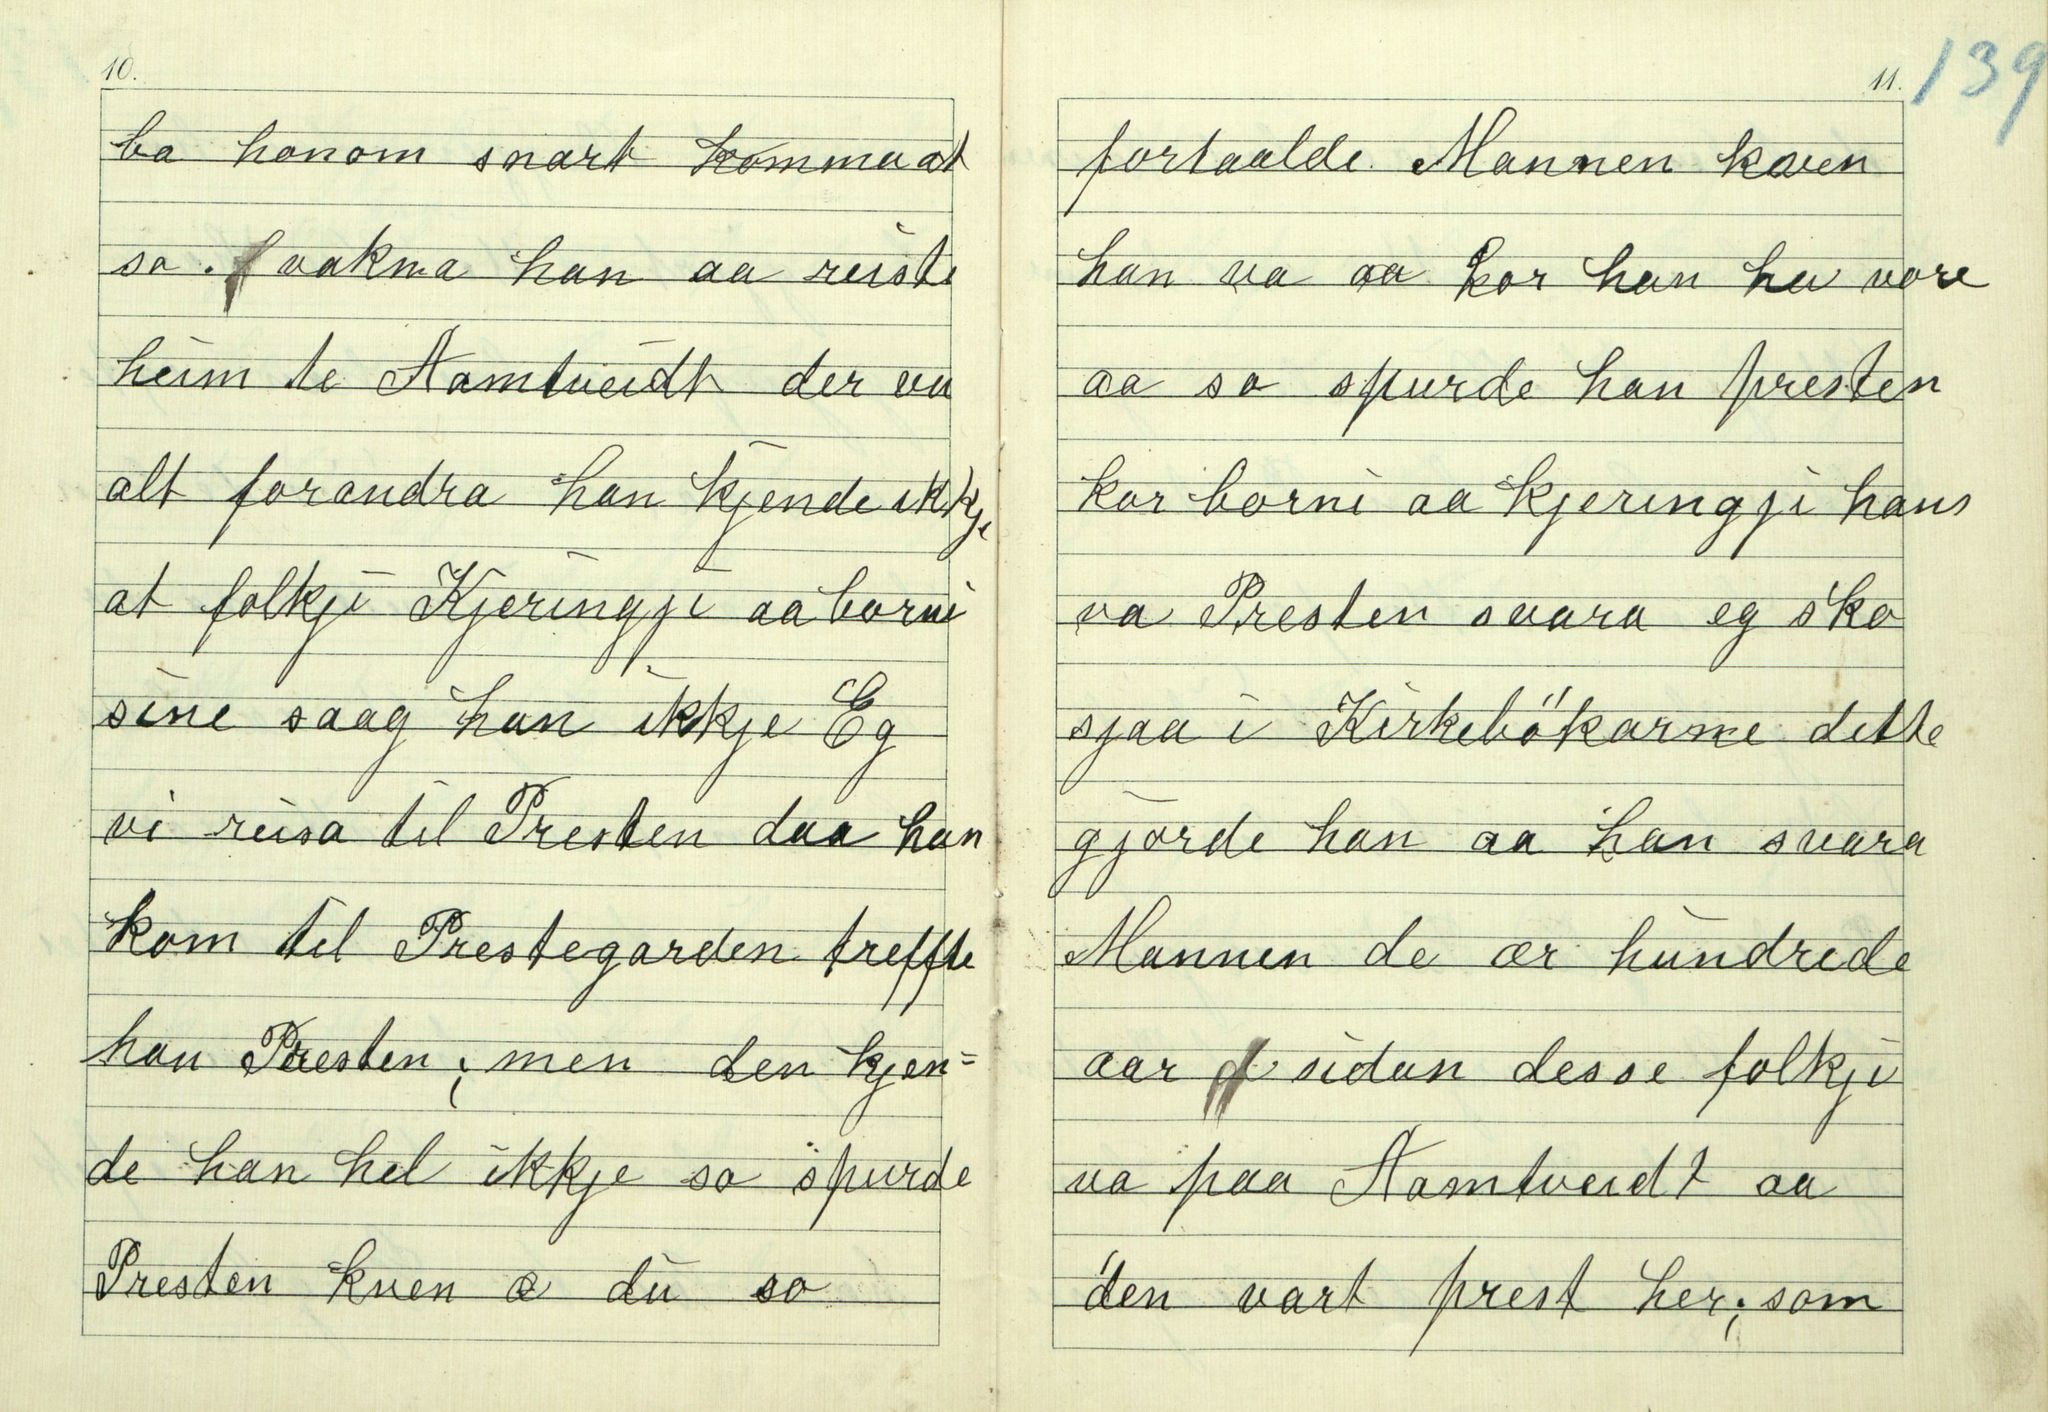 10.
ba honom snart komma at
so. vakna han aa reiste
heim te Aamtveidt der va
alt forandra han kjende ikkje
at folkji Kjeringji aa borni
sine saag han ikkje Eg
vi reisa til Presten daa han
kom til Prestegarden treffte
han Presten; men den kjen=
de han hel ikkje so spurde
Presten kven æ du so
11.
139
fortaalde Mannen kven
han va aa kor han ha vore
aa so spurde han presten
kor borni aa kjeringji hans
va Presten svara eg sko
sjaa i Kirkebökarne dette
gjorde han aa han svara
Mannen de ær hundrede
aar sidan desse folkji
va paa Aamtveidt aa
den vart prest her; som